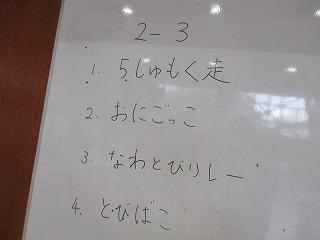 2-3
1. 5しゅもく走
2. おにごっこ
3. なわとびリレー
4. とびばこ